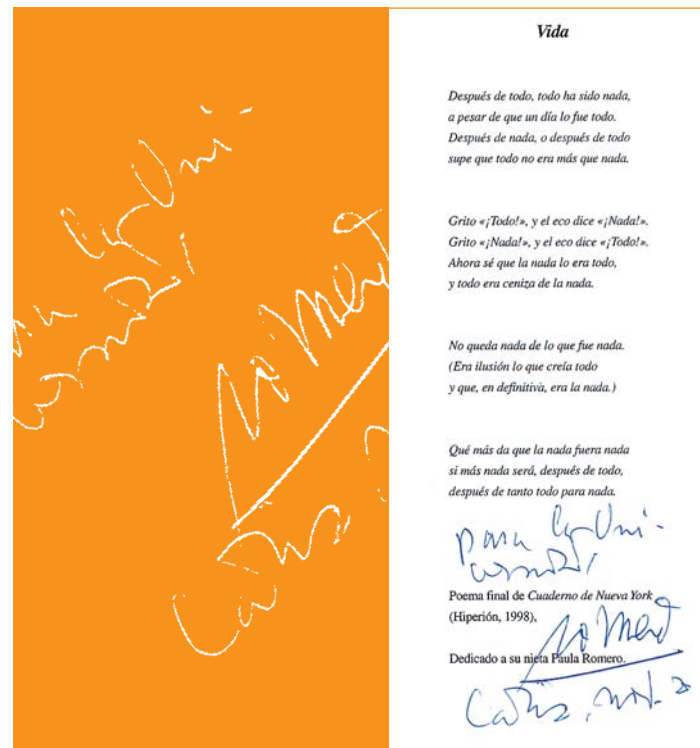 Vida
Después de todo, todo ha sido nada,
a pesar de que un día lo fue todo.
Después de nada, o después de todo
supe que todo no era más que nada.
Grito «¡Todo!», y el eco dice «¡Nada!».
Grito «¡Nada!», y el eco dice «¡Todo!».
Ahora sé que la nada lo era todo,
y todo era ceniza de la nada.
No queda nada de lo que fue nada.
(Era ilusión lo que creía todo
y que, en definitiva, era la nada.)
Qué más da que la nada fuera nada
si más nada será, después de todo,
después de tanto todo para nada.
para la Uni-
versidad
Poema final de Cuaderno de Nueva York
(Hiperión, 1998),
Dedicado a su nieta Paula Romero.